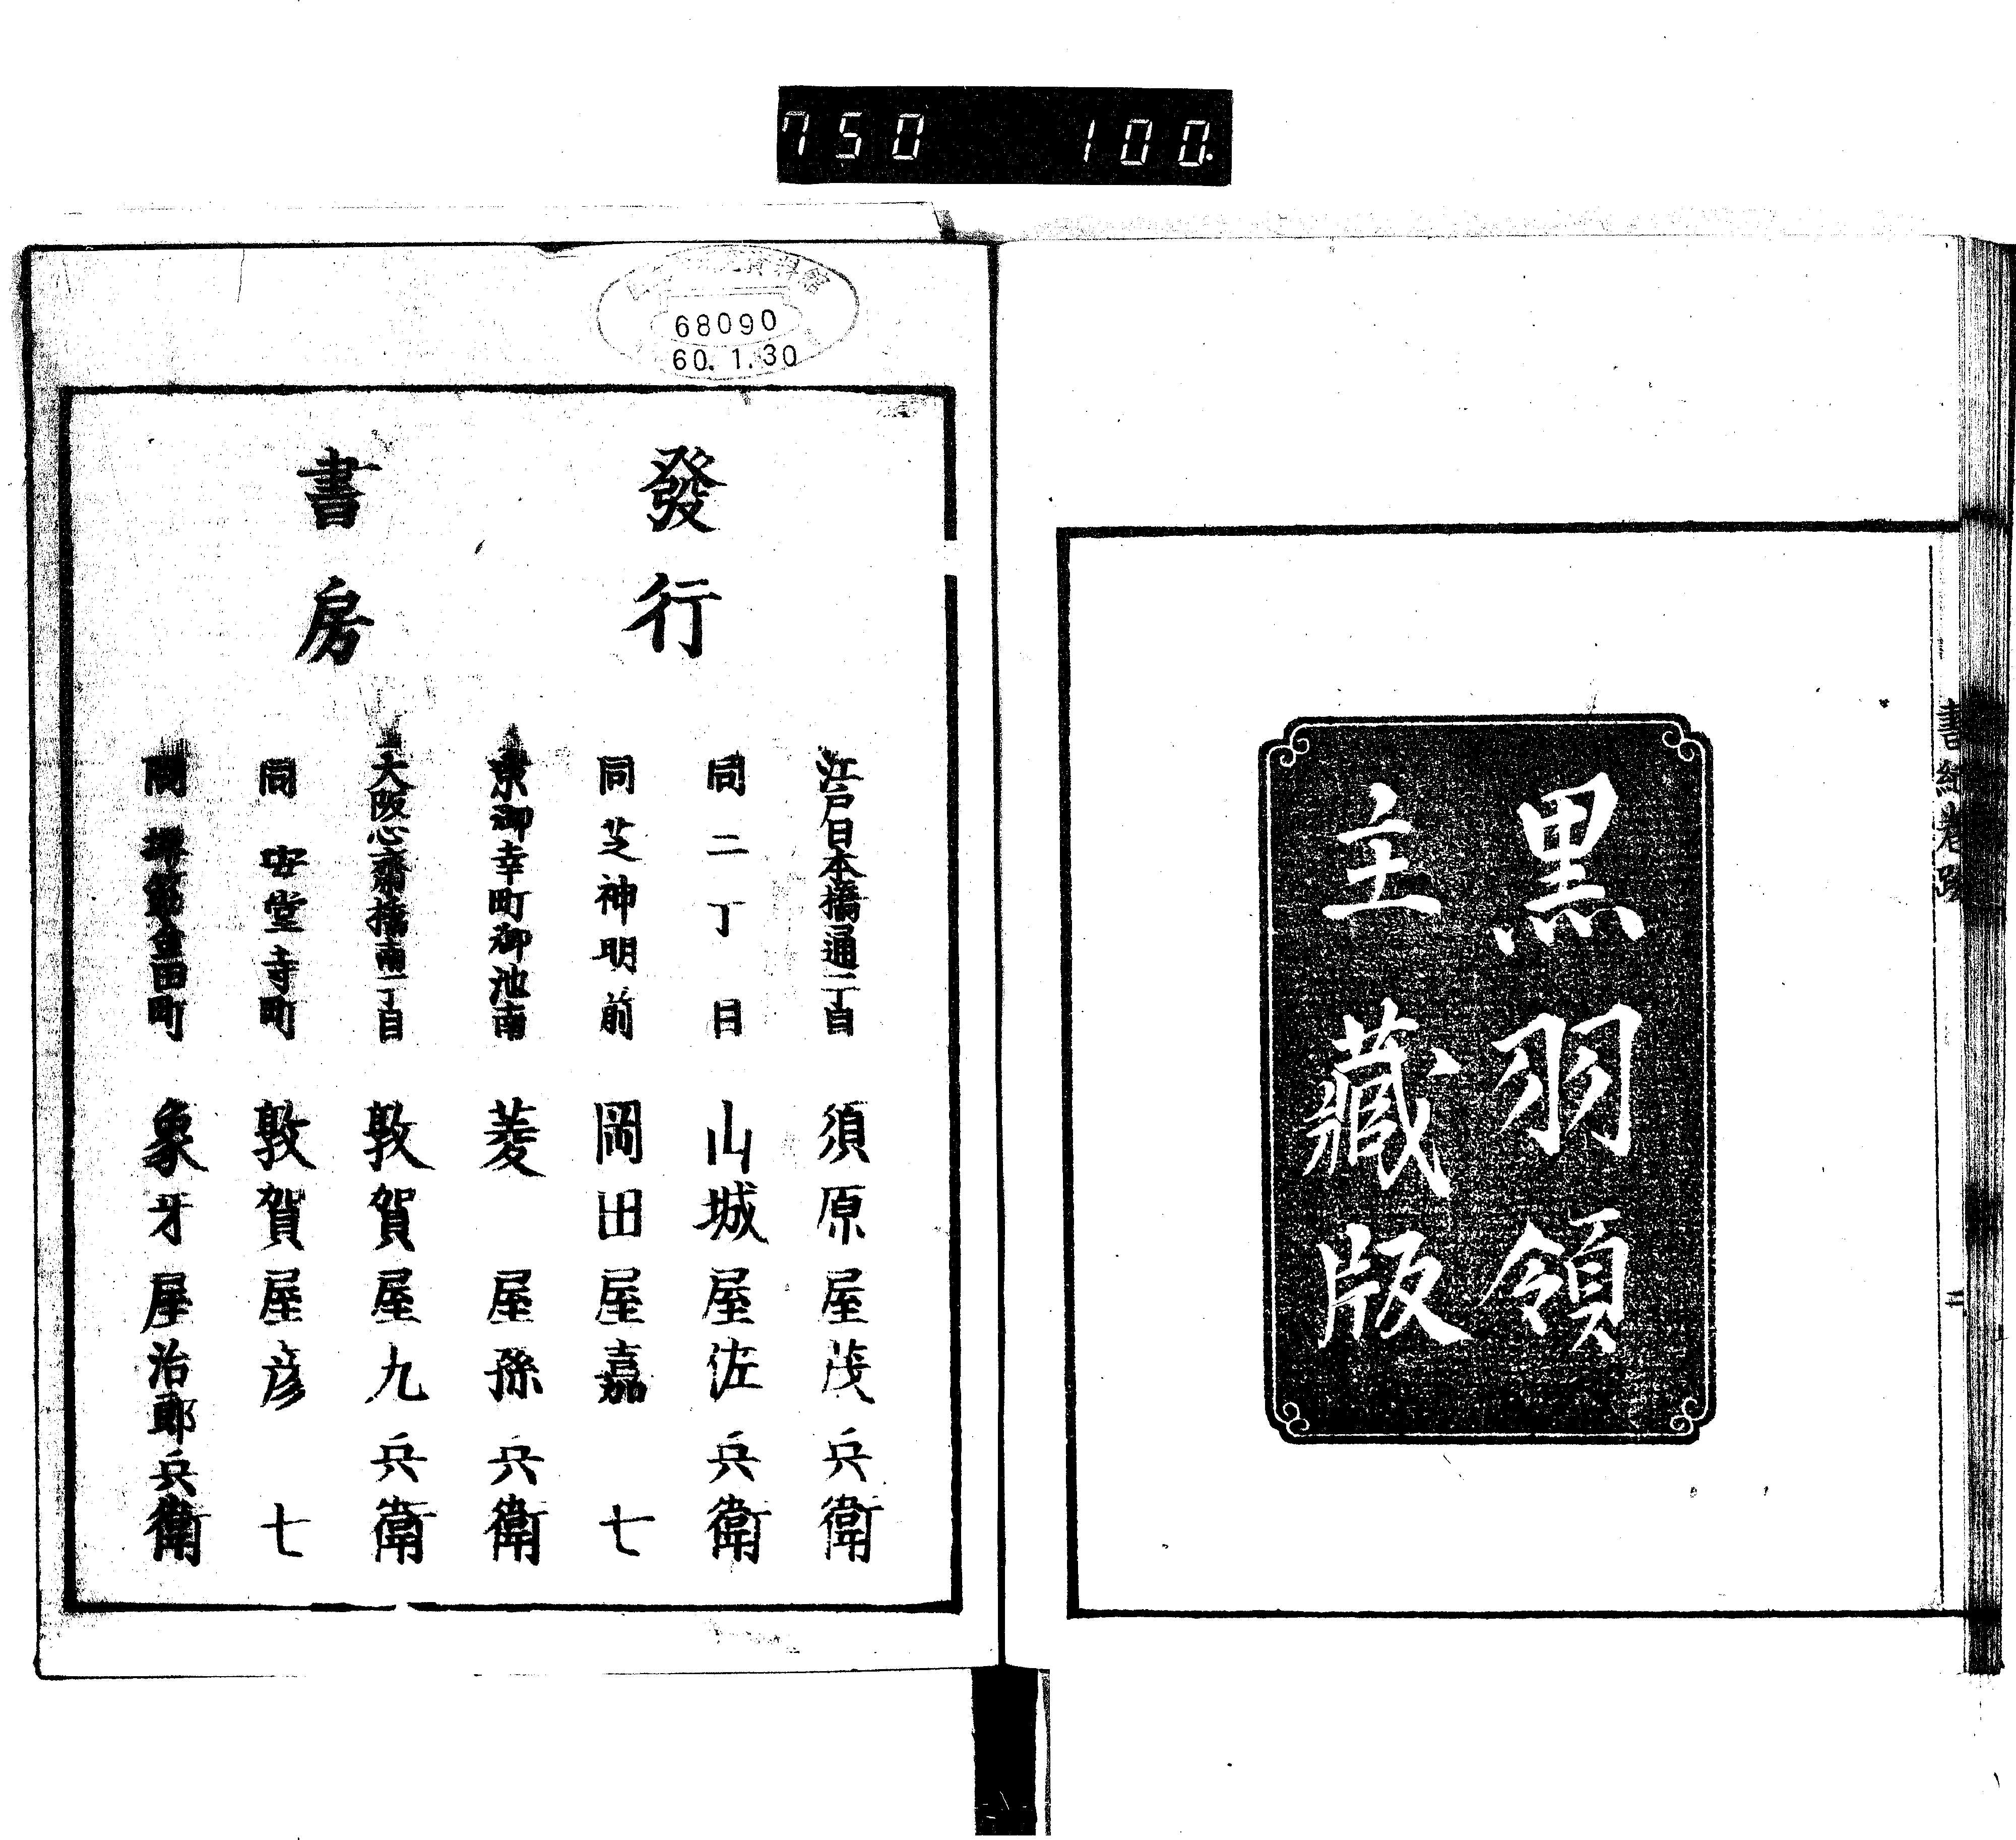 750 100.
黒羽領
主藏版
書經卷跋
二
68090
60.1.30
發行
書房
江戸日本橋通一丁目 須原屋茂兵衛
同二丁目 山城屋佐兵衛
同芝神明前 岡田屋嘉七
京御幸町御池南 菱屋孫兵衛
大阪心齋橋南一丁目 敦賀屋九兵衛
同安堂寺町 敦賀屋彦七
同 金田町 象牙屋治郎兵衛